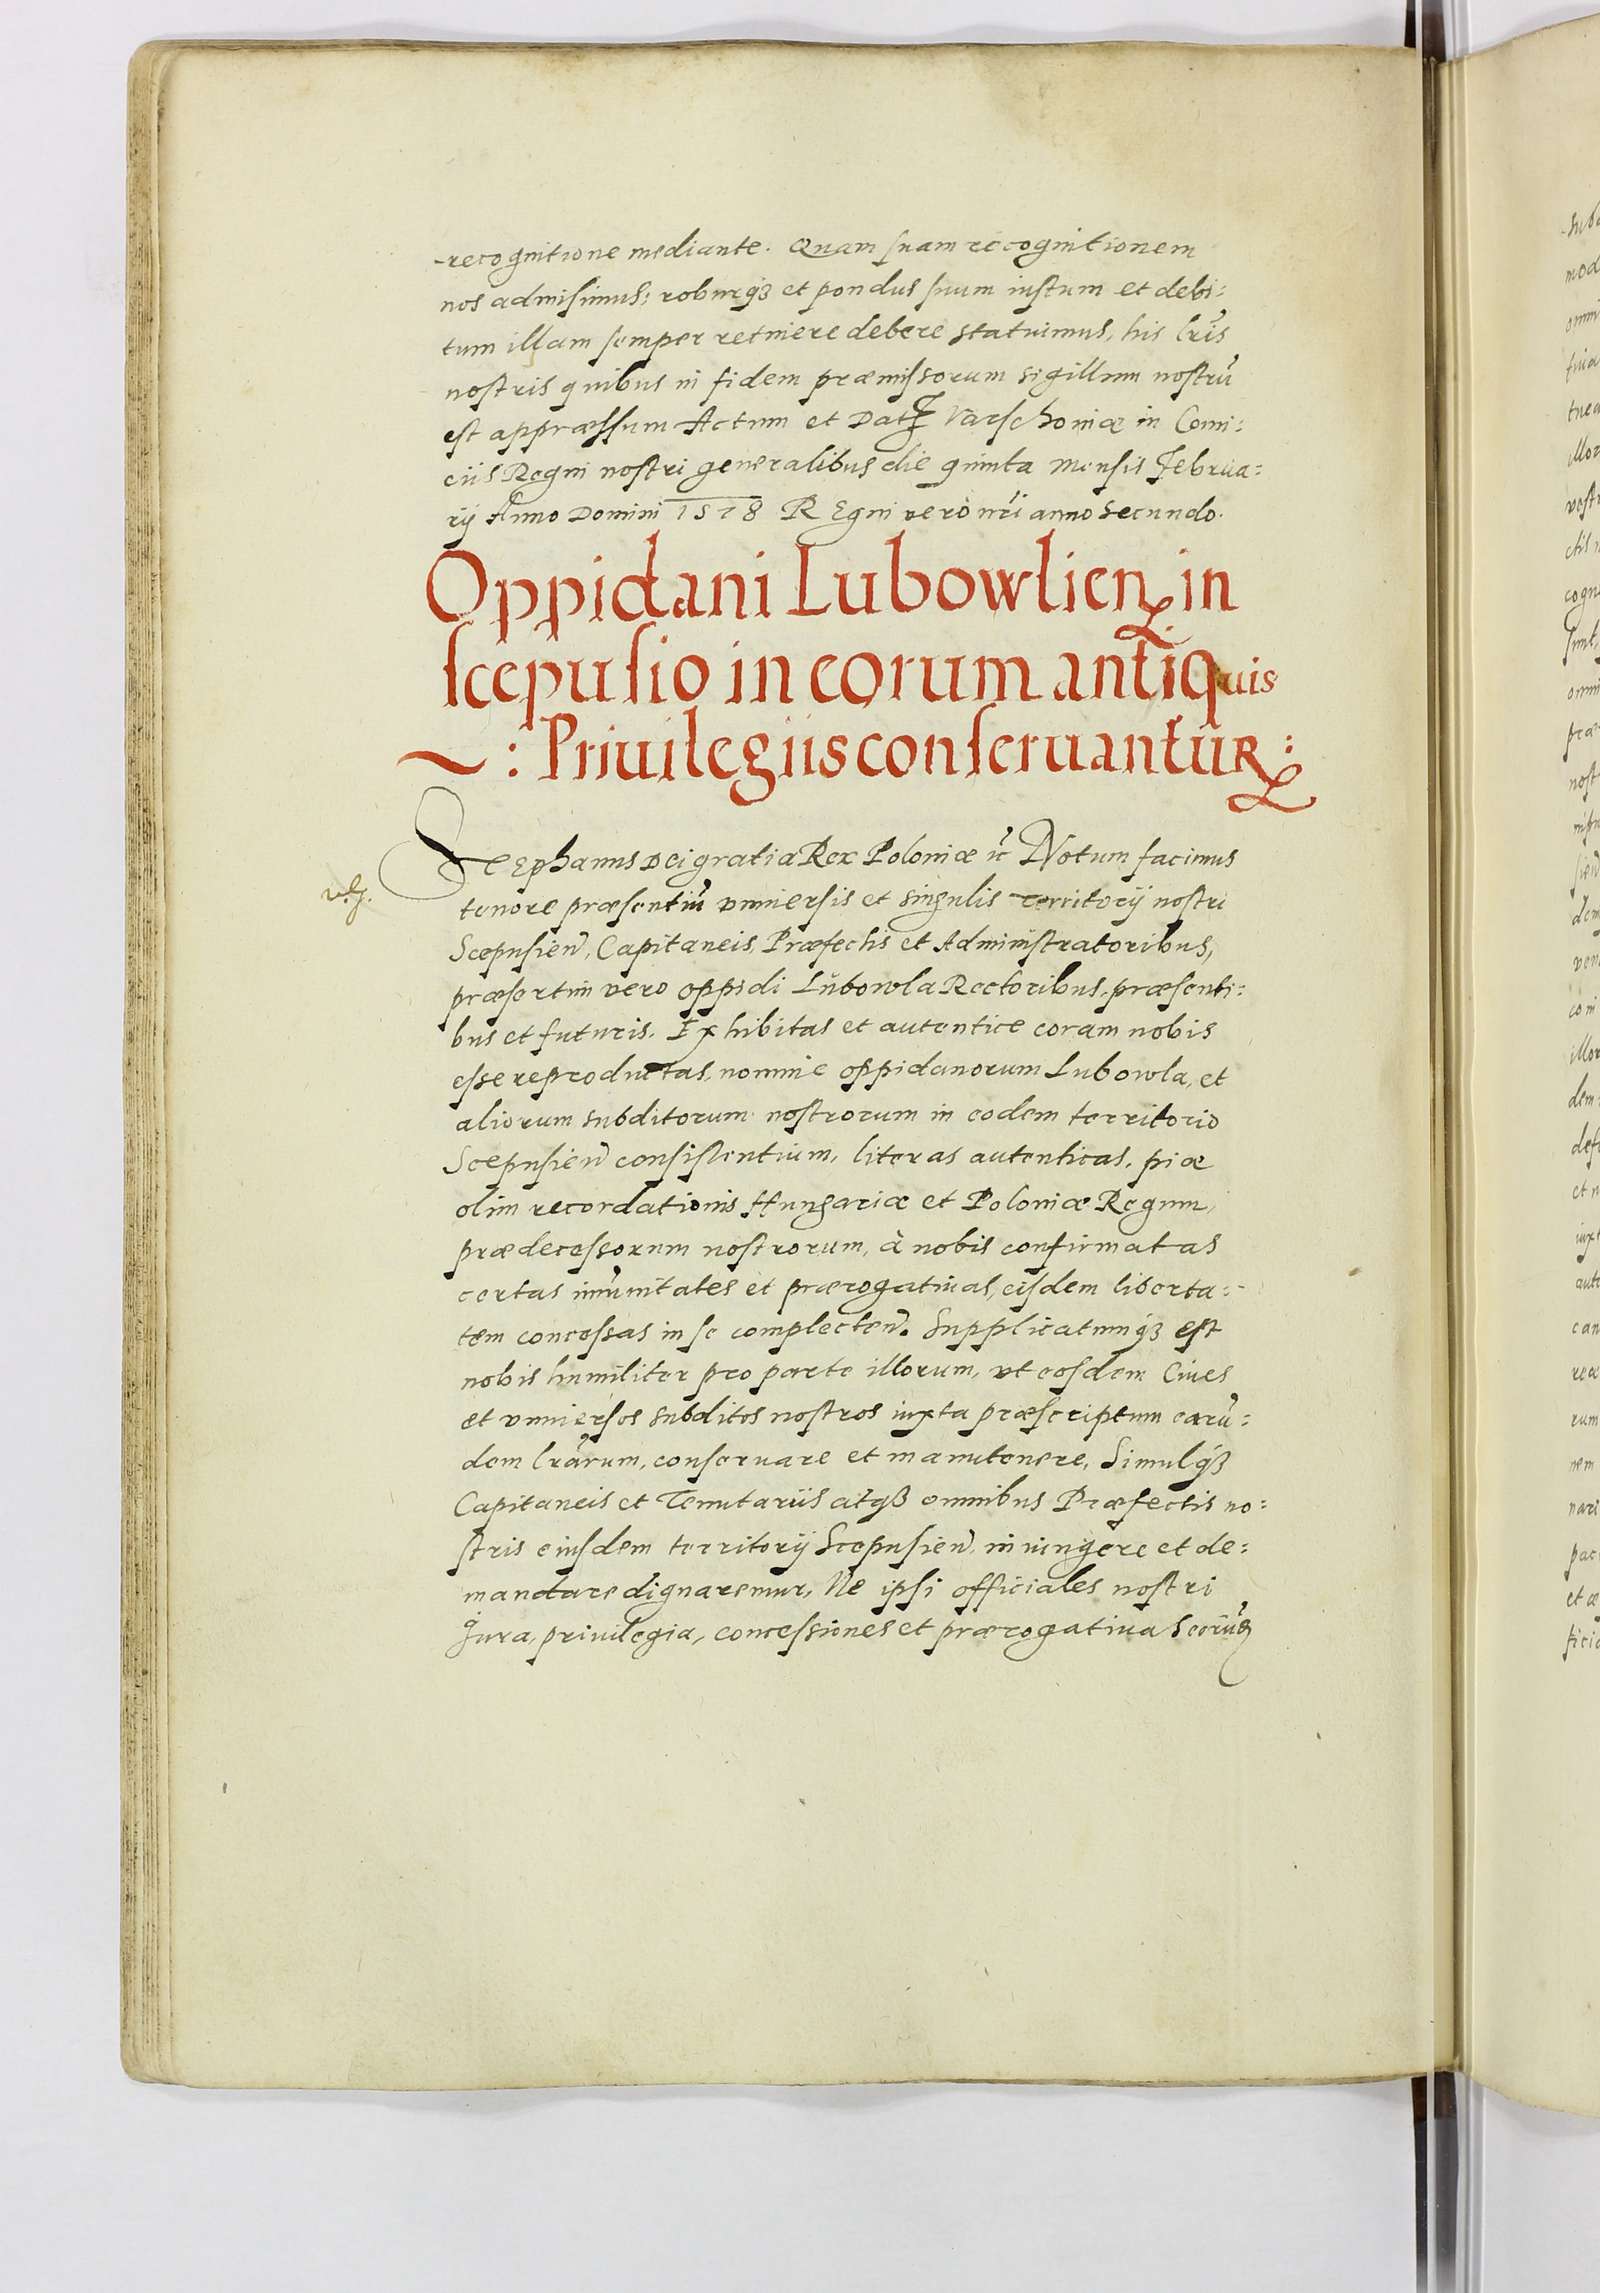 -recognitione mediante. Quam suam recognitionem
nos admisimus, roburq3 et pondus suum iustum et debi:
tum illam semper retinere debere statuimus, his lr̃is
nostris quibus in fidem præmissorum sigillum nostrũ
est appræssum Actum et Dat Varschoviæ in Comi:
ciis Regni nostri generalibus die quinta mensis Februa:
rij Anno Domini 1578 REgni vero nr̃i anno secundo.
Oppidani Lubowlien in
scepusio in eorum antiquis
: Priuilegiis conseruantur:
STEphanus Dei gratia Rex Poloniæ ĩc Notum facimus
tenore præsentiũ vniuersis et singulis Territorij nostri
Scepusien̄, Capitaneis, Præfectis et Administratoribus,
præsertim vero oppidi Lubowla Rectoribus, præsenti:
bus et futuris. Exhibitas et autentice coram nobis
esse reproductas, nomine oppidanorum Lubowla, et
aliorum subditorum nostrorum in eodem territorio
Scepusien̄ consistentium, literas autenticas, piæ
olim recordationis Hungariæ et Poloniæ Regum,
prædecessorum nostrorum, à nobis confirmatas
certas imũnitates et prærogatiuas, eisdem liberta:
tem concessas in se complecten̄. Supplicatumq3 est
nobis humiliter pro parte illorum, vt eosdem Ciues
et vniuersos subditos nostros iuxta præscriptum earũ:
dem lr̃arum, conseruare et manutenere, Simulq3
Capitaneis et Tenutariis atq3 omnibus Præfectis no:
stris eiusdem territorij Scepusien̄, iniungere et de:
mandare dignaremur, Ne ipsi officiales nostri
Jura, priuilegia, concessiones et prærogatiuas eorũ